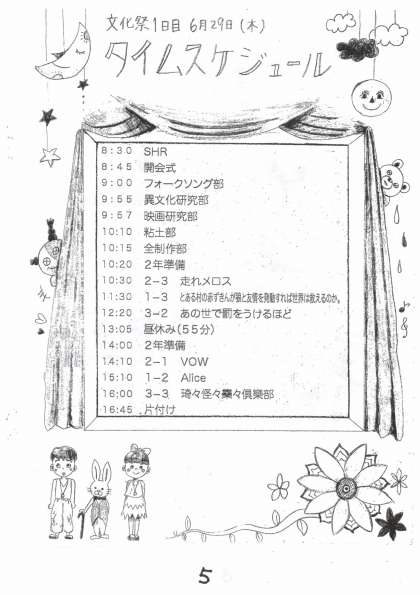 文化祭1日目 6月29日(木)
タイムスケジュール
8:30 SHR
8:45 開会式
9:00 フォークソング部
9:55 異文化研究部
9:57 映画研究部
10:10 粘土部
10:15 全制作部
10:20 2年準備
10:30 2-3 走れメロス
11:30 1-3 とある村の赤ずきんが狼と友情を発動すれば世界は救えるのか。
12:20 3-2 あの世で罰をうけるほど
13:05 昼休み(55分)
14:00 2年準備
14:10 2-1 VOW
15:10 1-2 Alice
16:00 3-3 琦々怪々奥々倶楽部
16:45 片付け
5